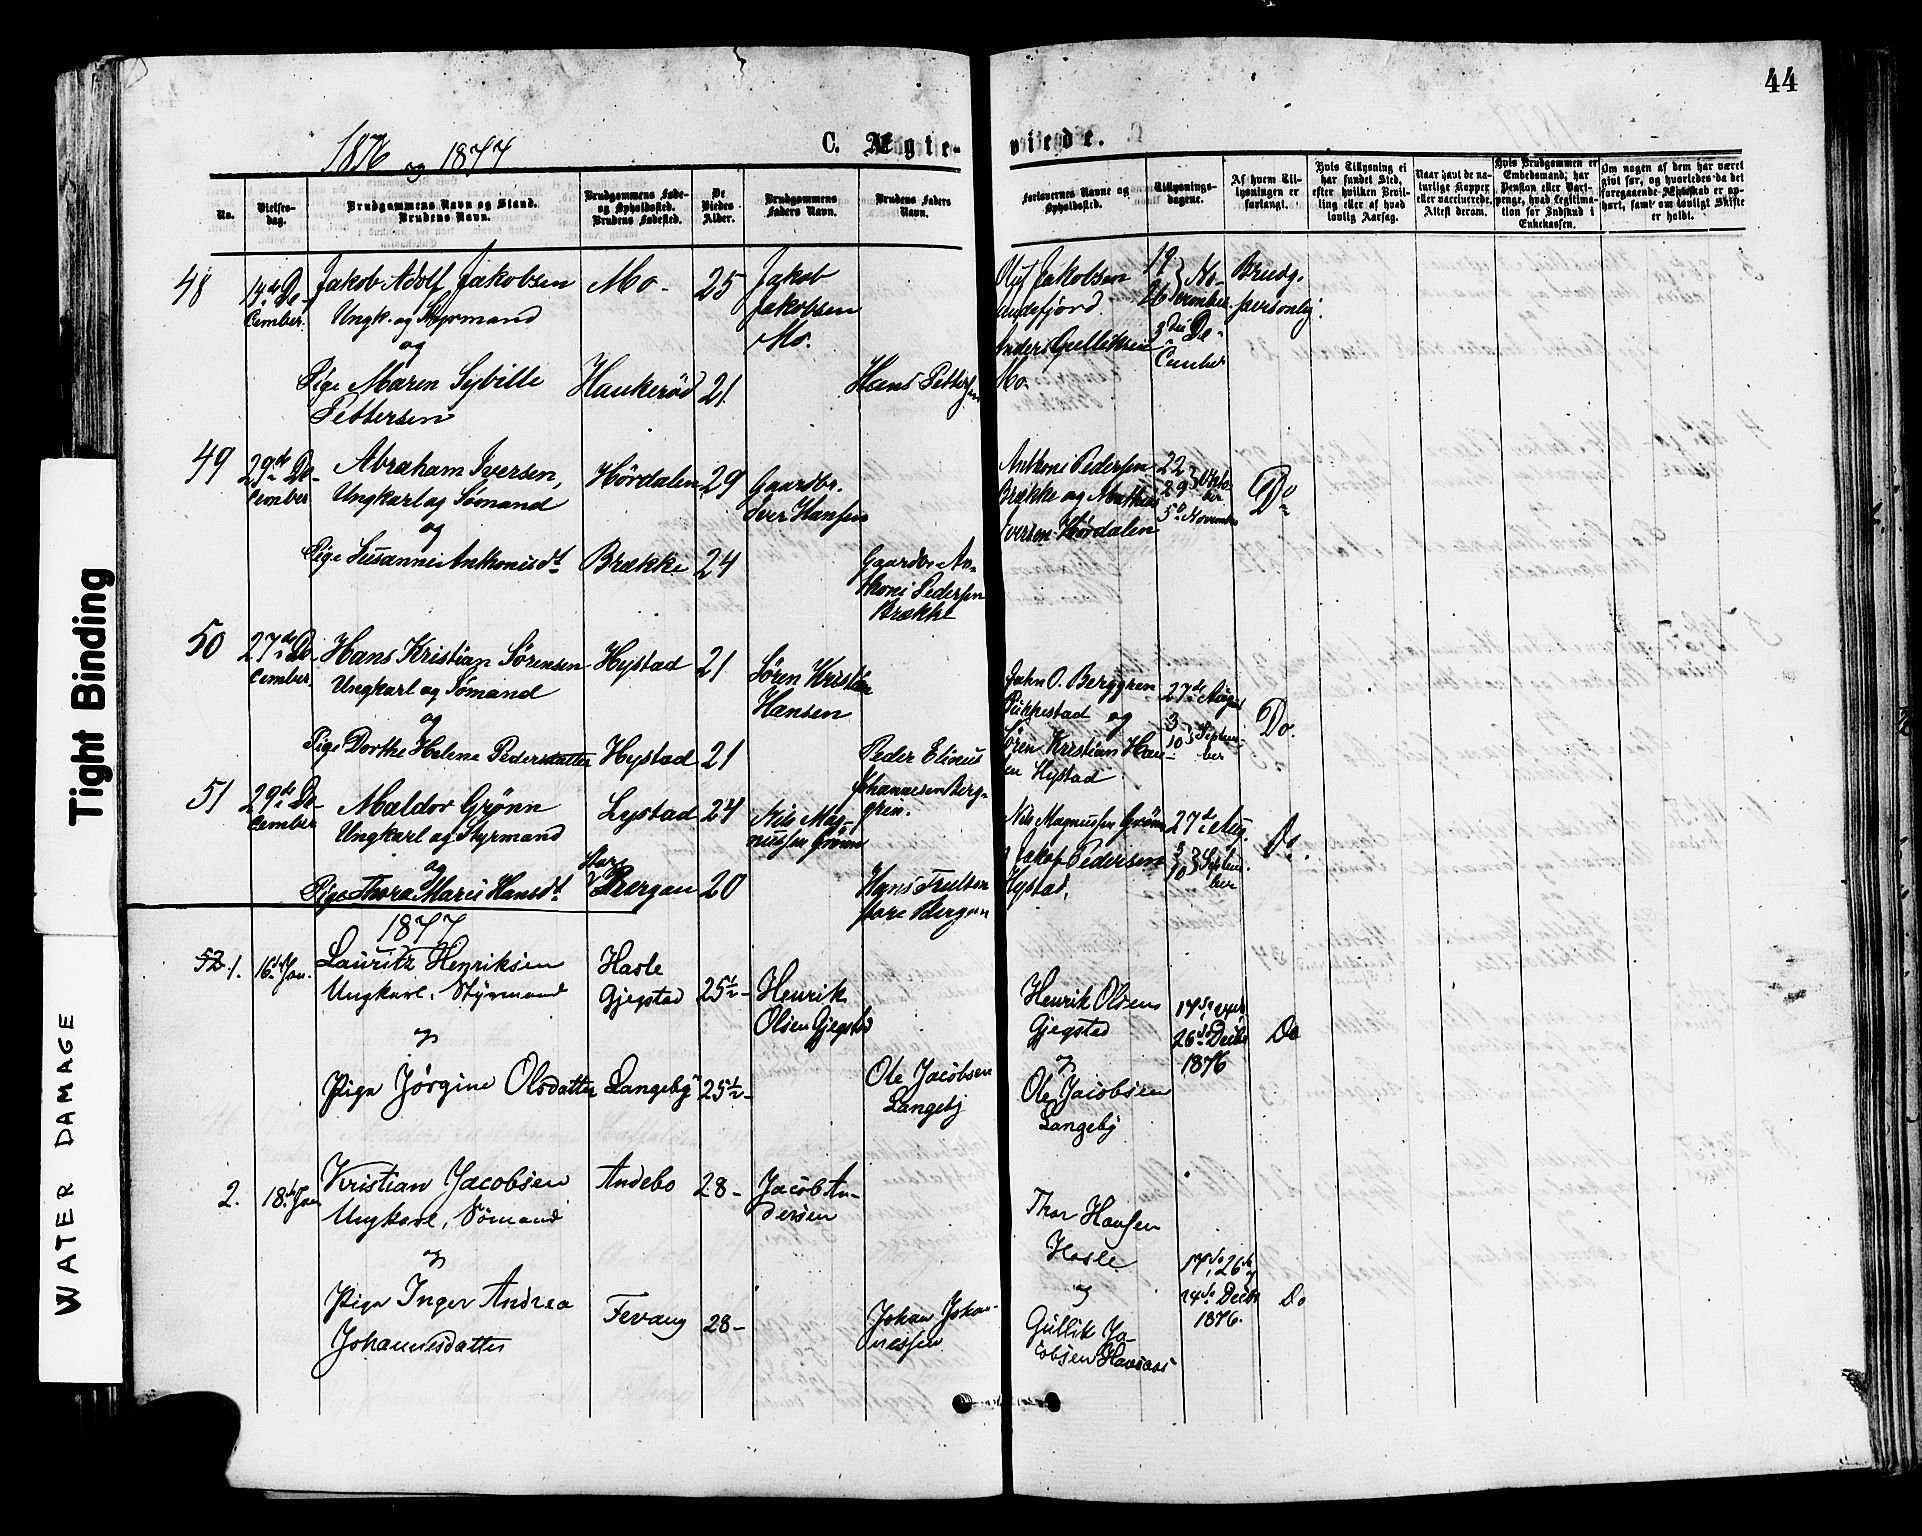 44
1876 og 1877
C. Ægte-
viede.
No.
Vielses-
dag.
Brudgommens Navn og Stand.
Brudens Navn.
Brudgommens Føde-
og Opholdssted.
Brudens Fødested.
De
Viedes
Alder.
Brudgommens
Faders Navn.
Brudens Faders
Navn.
Forlovernes Navne og
Opholdssted.
Tillysnings-
dagene.
Af hvem Til-
lysningen er
forlangt.
Hvis Tillysning ei
har fundet Sted,
efter hvilken Bevil-
ling eller af hvad
lovlig Aarsag.
Naar havt de na-
turlige Kopper
eller vaccinerede.
Attest derom.
Hvis Brudgommen er
Embedsmand, har
Pension eller Vart-
penge, hvad Legitima-
tion for Indskud i
Enkekassen.
Om nogen af dem har været
gift før, og hvorledes da det
foregaaende Ægteskab er op-
hørt, samt om lovligt Skifte
er holdt.
48
14de De-
cember.
Jakob Adolf Jakobsen
Ungk. og Styrmand
og
Pige Maren Sybille
Pettersen
Mo.
Haukerød
25
21
Jakob
Jakobsen
Mo.
Hans Pettersen
Jakobsen
Anders Gulliksen
Mo.
19
26 } No-
vember
3die De-
cember
Brudg.
personlig.
49
29de De-
cember
Abraham Iversen,
Ungkarl og Sømand
og
Pige Susanne Anthonisdt
Hørdalen
Brække
29
24
Gaardbr.
Iver Hansen
Gaardbr. An-
thoni Pedersen
Brække
Anthoni Pedersen
Brække og Mathias
Iversen Hørdalen
22
29 } Okto-
ber
5te November
Do
50
27de De-
cember.
Hans Kristian Sørensen
Ungkarl og Sømand
og
Pige Dorthe Helene Pedersdatter
Hystad
Hystad
21
21
Søren Kristian
Hansen
Peder Elinus
Johannesen Berg-
gren.
John O. Berggren
Pukkestad og
Søren Kristian Han-
sen Hystad
27de August
3
10 } Septem-
ber
Do.
51
29de De-
cember
Maldor Grønn
Ungkarl og Styrmand
og
Pige Thora Marie Hansdt.
Lystad
Store
Bergan
24
20
Nils Mag-
nussen Grønn
Hans Trulsen
store Bergan
Nils Magnussen Grønn
Jakob Pedersen
Hystad,
27de Aug.
3
10 } Septem-
ber
Do.
1877
52 1.
16de Jan.
Lauritz Henriksen
Ungkarl, Styrmand
og
Pige Jørgine Olsdatter
Hasle
Gjegstad
Langeby
25½
25½
Henrik
Olsen Gjegstad
Ole Jacobsen
Langeby
Henrik Olsen
Gjegstad
og
Ole Jacobsen
Langeby
17de, 24de
26de Decbr
1876
Do
2.
18de Jan
Kristian Jacobsen
Ungkarl, Sømand
og
Pige Inger Andrea
Johannesdatter
Andebo
Fevang
28
28
Jacob An-
dersen
Johan Johan-
nessen
Thor Hansen
Hasle
og
Gullik Ja-
cobsen
17de, 26de
24de Decbr
1876.
Do
Tight Binding
WATER DAMAGE